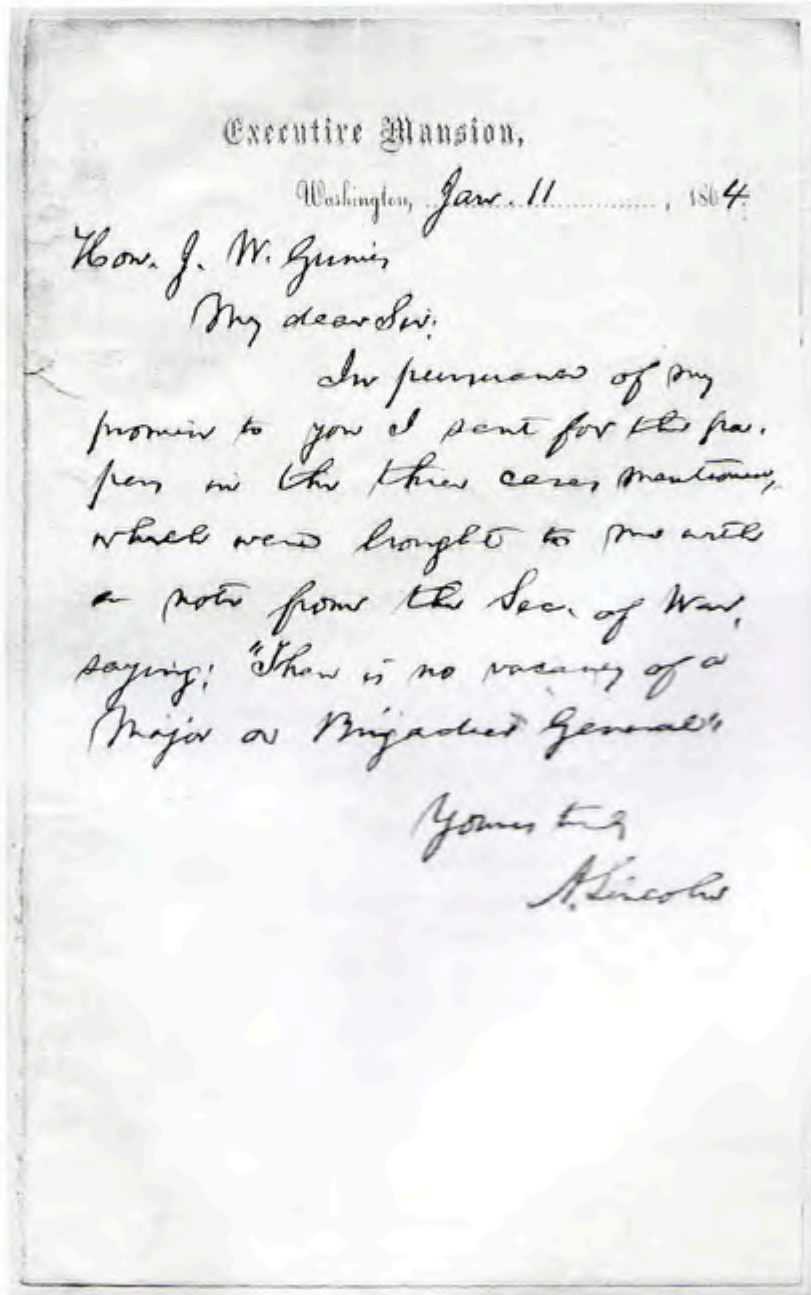 Executive Mansion,
Washington, Jan. 11, 1864.
Hon. J. W. Grimes
My dear Sir:
In pursuance of my
promise to you I sent for the pa-
pers in the three cases mentioned,
which were brought to me with
a note from the Sec. of War,
saying: "There is no vacancy of a
Major or Brigadier General"
Yours truly
A. Lincoln